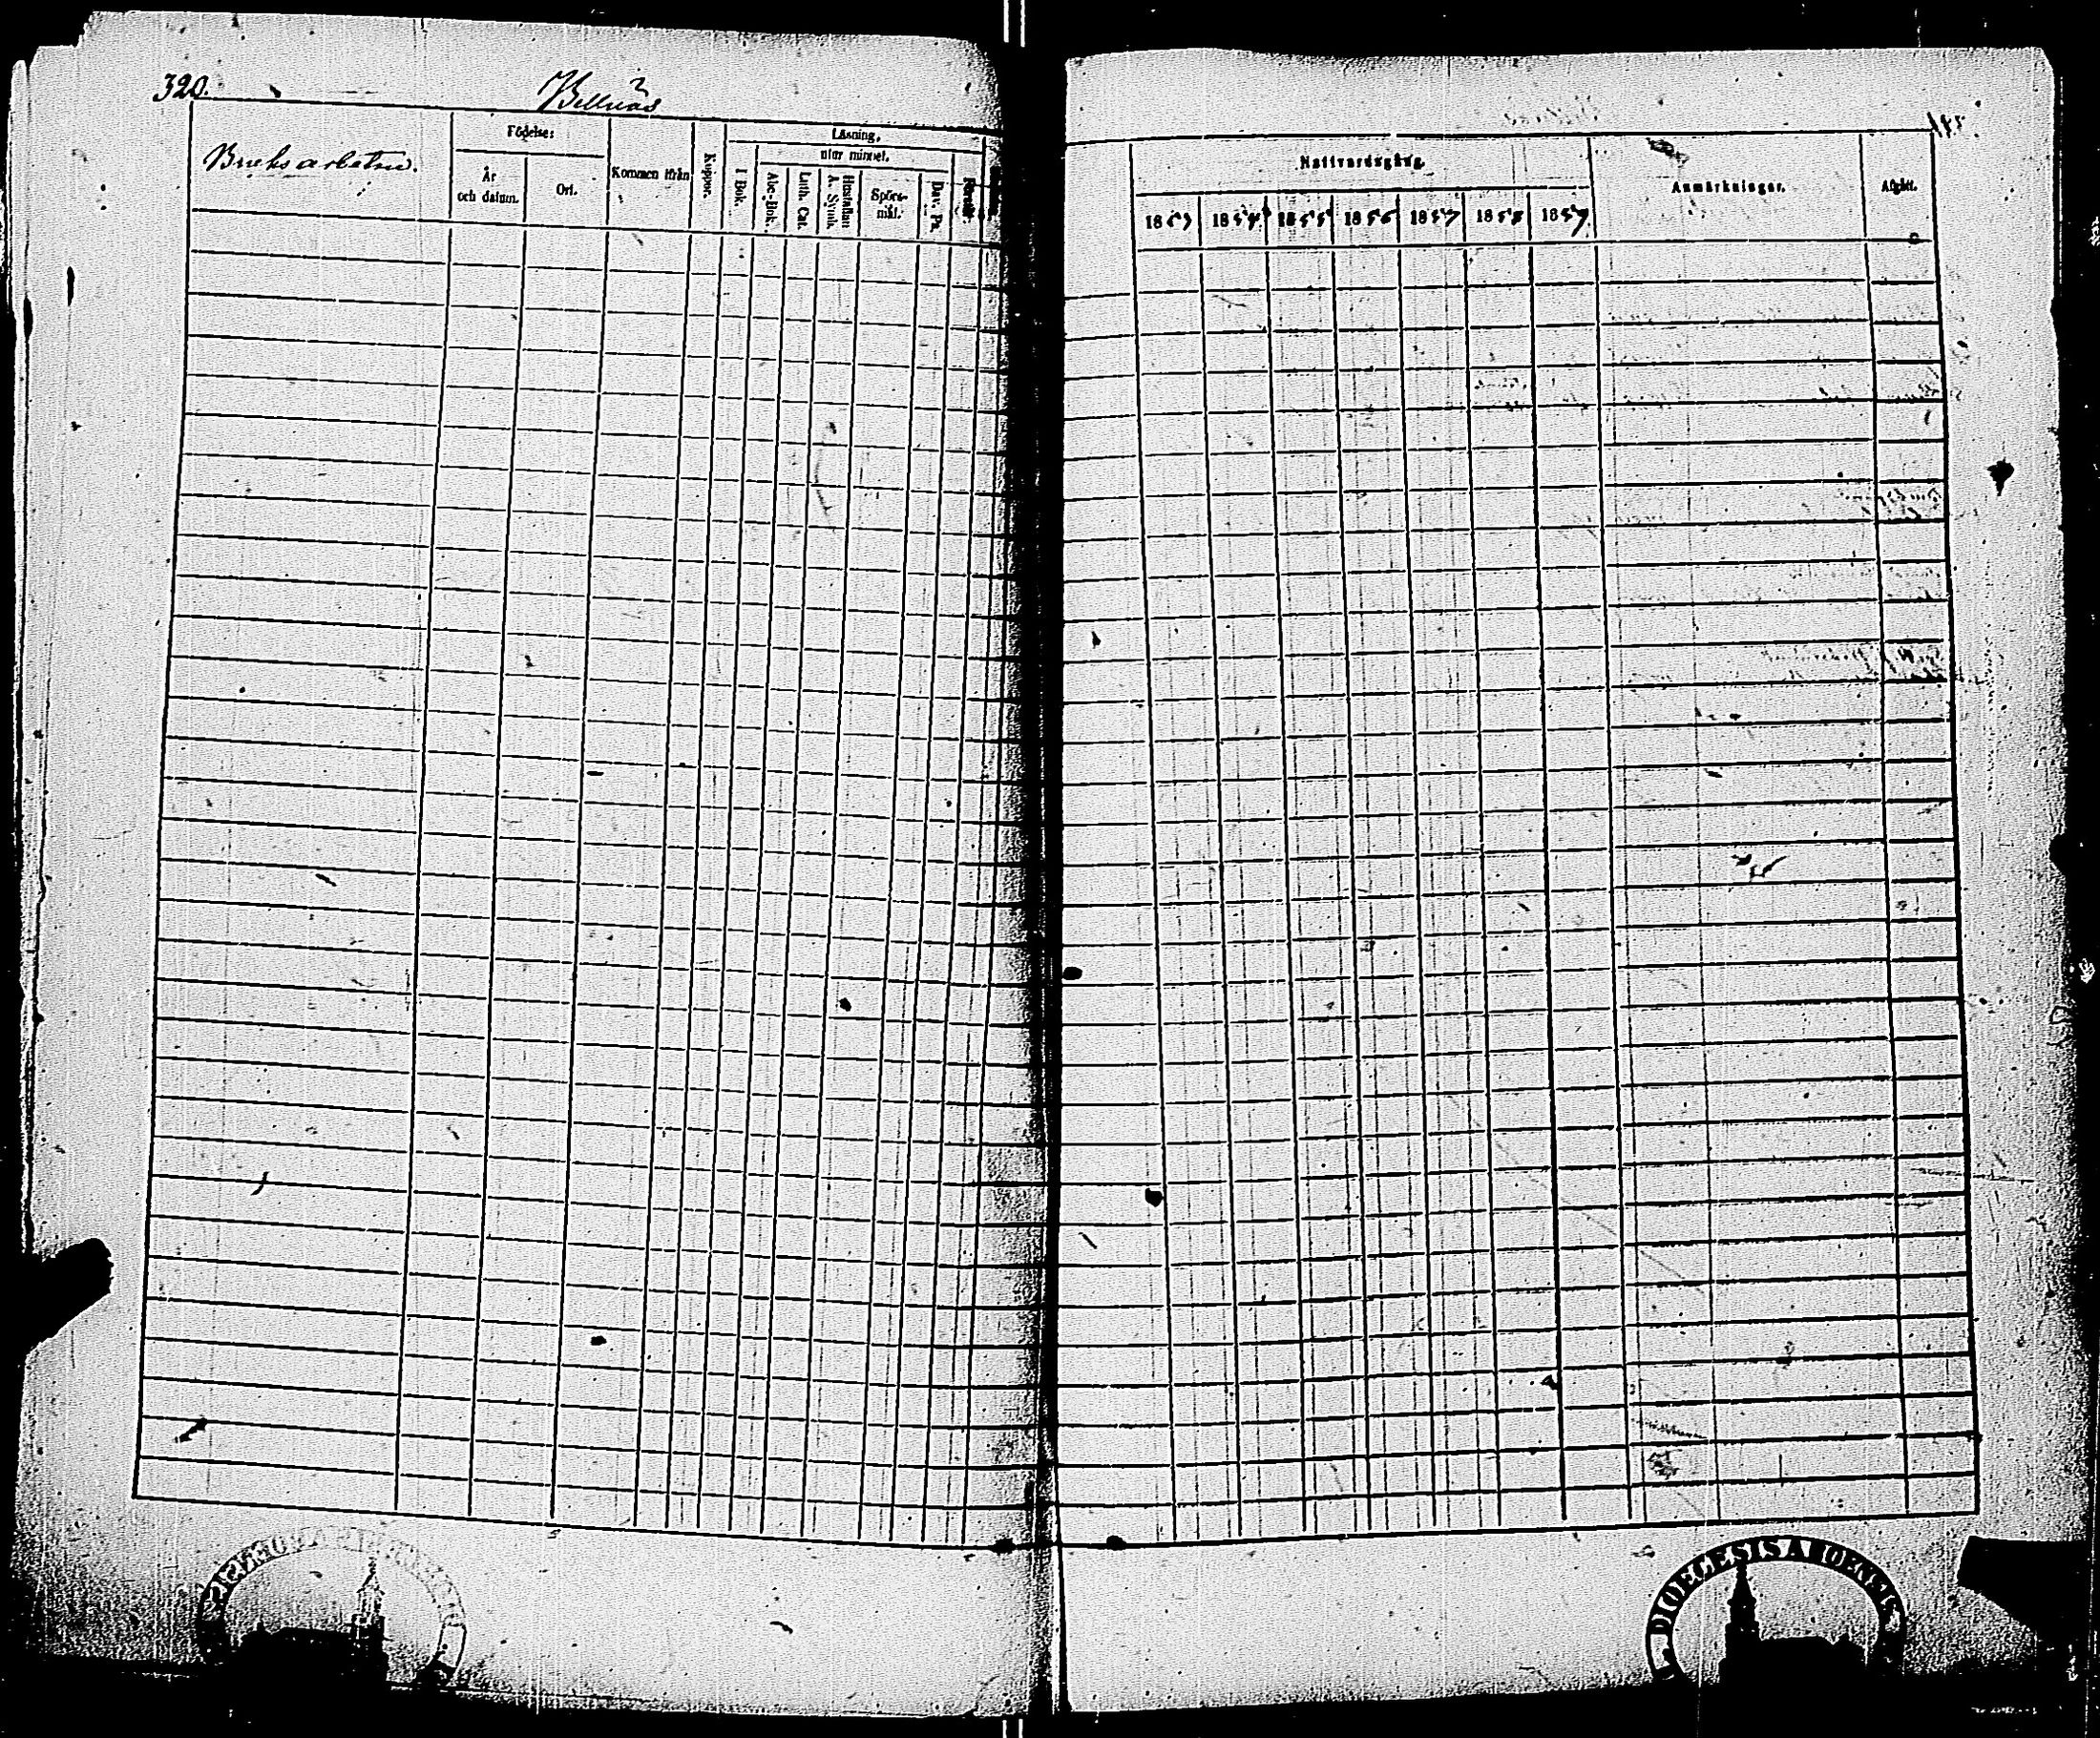 320.
Billnäs
Bruksarbetare.
Födelse:
År
och datum.
Ort.
Kommen ifrån
Koppor.
Läsning,
I Bok.
utur minnet.
Abc-Bok.
Luth. Cat.
Hustaflan
A. Symb.
Spörs-
mål.
Dav. Ps.
Nattvardsgång.
1853
1854
1855
1856
1857
1858
1859
Anmärkningar.
Afgått.
DIOECESIS ABOENSIS